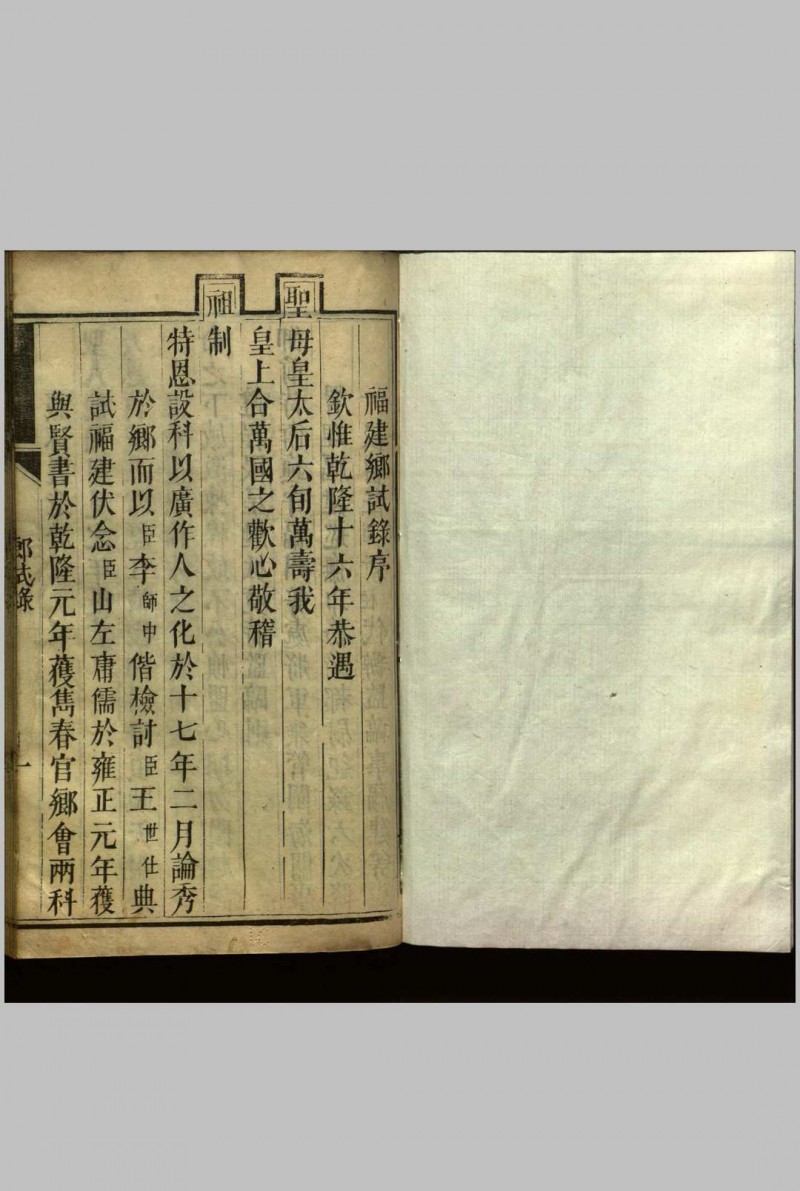 福建鄉試錄序
欽惟乾隆十六年恭遇
聖母皇太后六旬萬壽我
皇上合萬國之歡心敬稽
祖制
特恩設科以廣作人之化於十七年二月論秀
於鄉而以臣李師中偕檢討臣王世仕典
試福建伏念臣山左庸儒於雍正元年獲
與賢書於乾隆元年獲雋春官鄉會兩科
鄉試錄
一